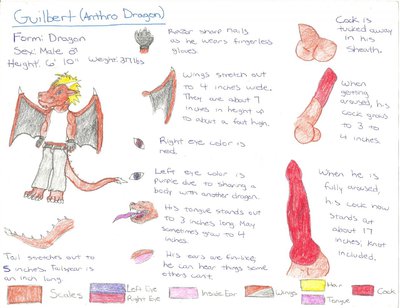 Guilbert (Anthro Dragon)
Form: Dragon
Sex: Male ♂
Height: 6' 10" Weight: 317 lbs
Razor sharp nails
as he wears fingerless
gloves
Wings stretch out
to 4 inches wide.
They are about 7
inches in height up
to about a foot high.
Right eye color is
red.
Left eye color is
purple due to sharing a
body with another dragon.
His tongue stands out
to 3 inches long. May
sometimes grow to 4
inches.
His ears are fin-like,
he can hear things some
others can't.
Tail stretches out to
5 inches. Tailspear is
an inch long.
Cock is
tucked away
in his
sheath.
When
getting
aroused, his
cock grows
to 3 to
4 inches.
When he is
fully aroused,
his cock now
stands at
about 17
inches, knot
included.
Scales
Left Eye
Right Eye
Inside Ear
Wings
Hair
Tongue
Cock